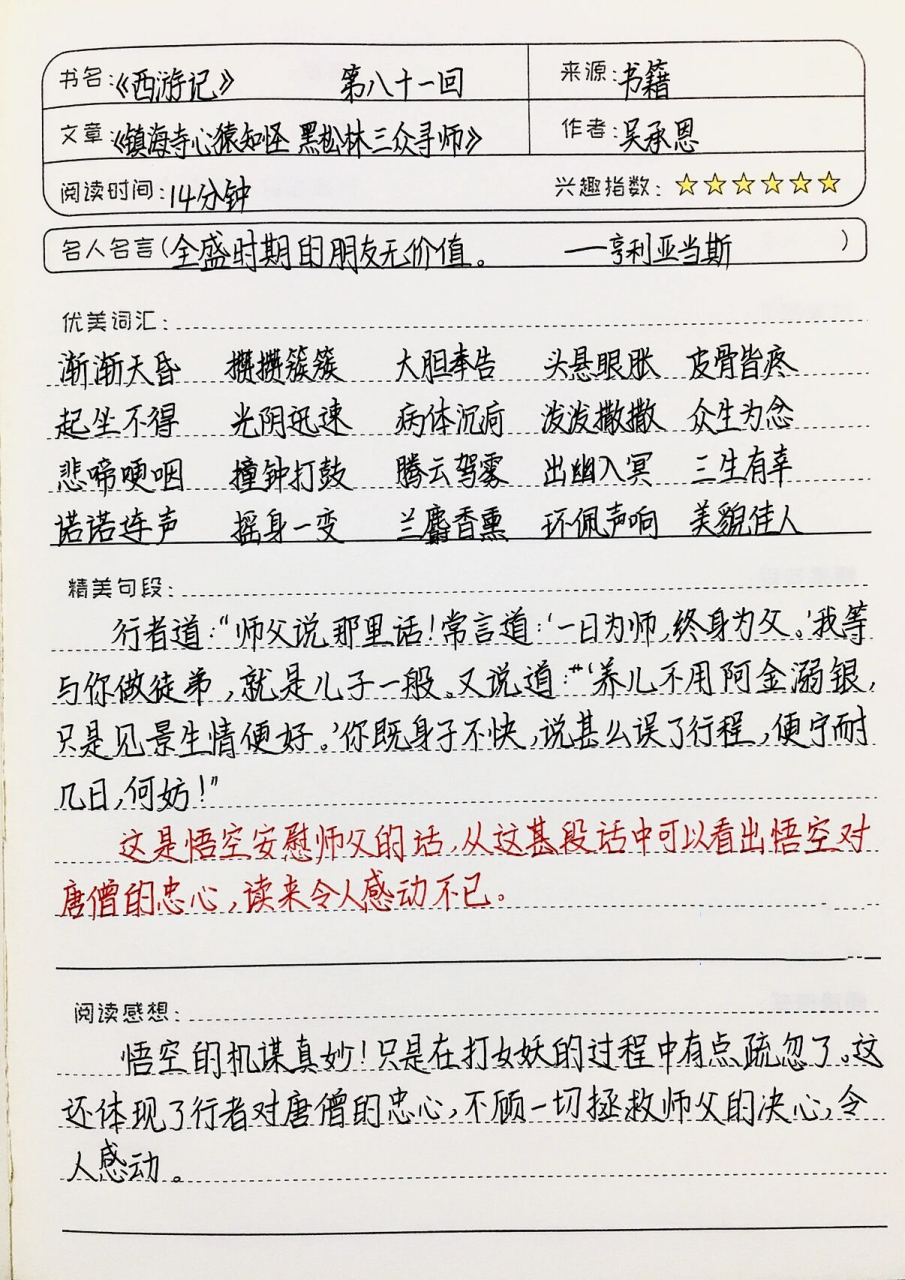 书名:《西游记》 第八十一回 来源:书籍
文章:《镇海寺心猿知怪 黑松林三众寻师》 作者:吴承恩
阅读时间:14分钟 兴趣指数:☆☆☆☆☆☆
名人名言(全盛时期的朋友无价值。 —亨利亚当斯 )
优美词汇:
渐渐天昏 攒攒簇簇 大胆奉告 头悬眼胀 皮骨皆疼
起坐不得 光阴迅速 病体沉疴 泼泼撒撒 众生为念
悲啼哽咽 撞钟打鼓 腾云驾雾 出幽入冥 三生有幸
诺诺连声 摇身一变 兰麝香熏 环佩声响 美貌佳人
精美句段:
行者道:“师父说那里话!常言道:‘一日为师,终身为父。’我等
与你做徒弟,就是儿子一般。又说道:“‘养儿不用阿金溺银,
只是见景生情便好。’你既身子不快,说甚么误了行程,便宁耐
几日,何妨!”
这是悟空安慰师父的话,从这甚段话中可以看出悟空对
唐僧的忠心,读来令人感动不已。
阅读感想:
悟空的机谋真妙!只是在打女妖的过程中有点疏忽了。这
还体现了行者对唐僧的忠心,不顾一切拯救师父的决心,令
人感动。